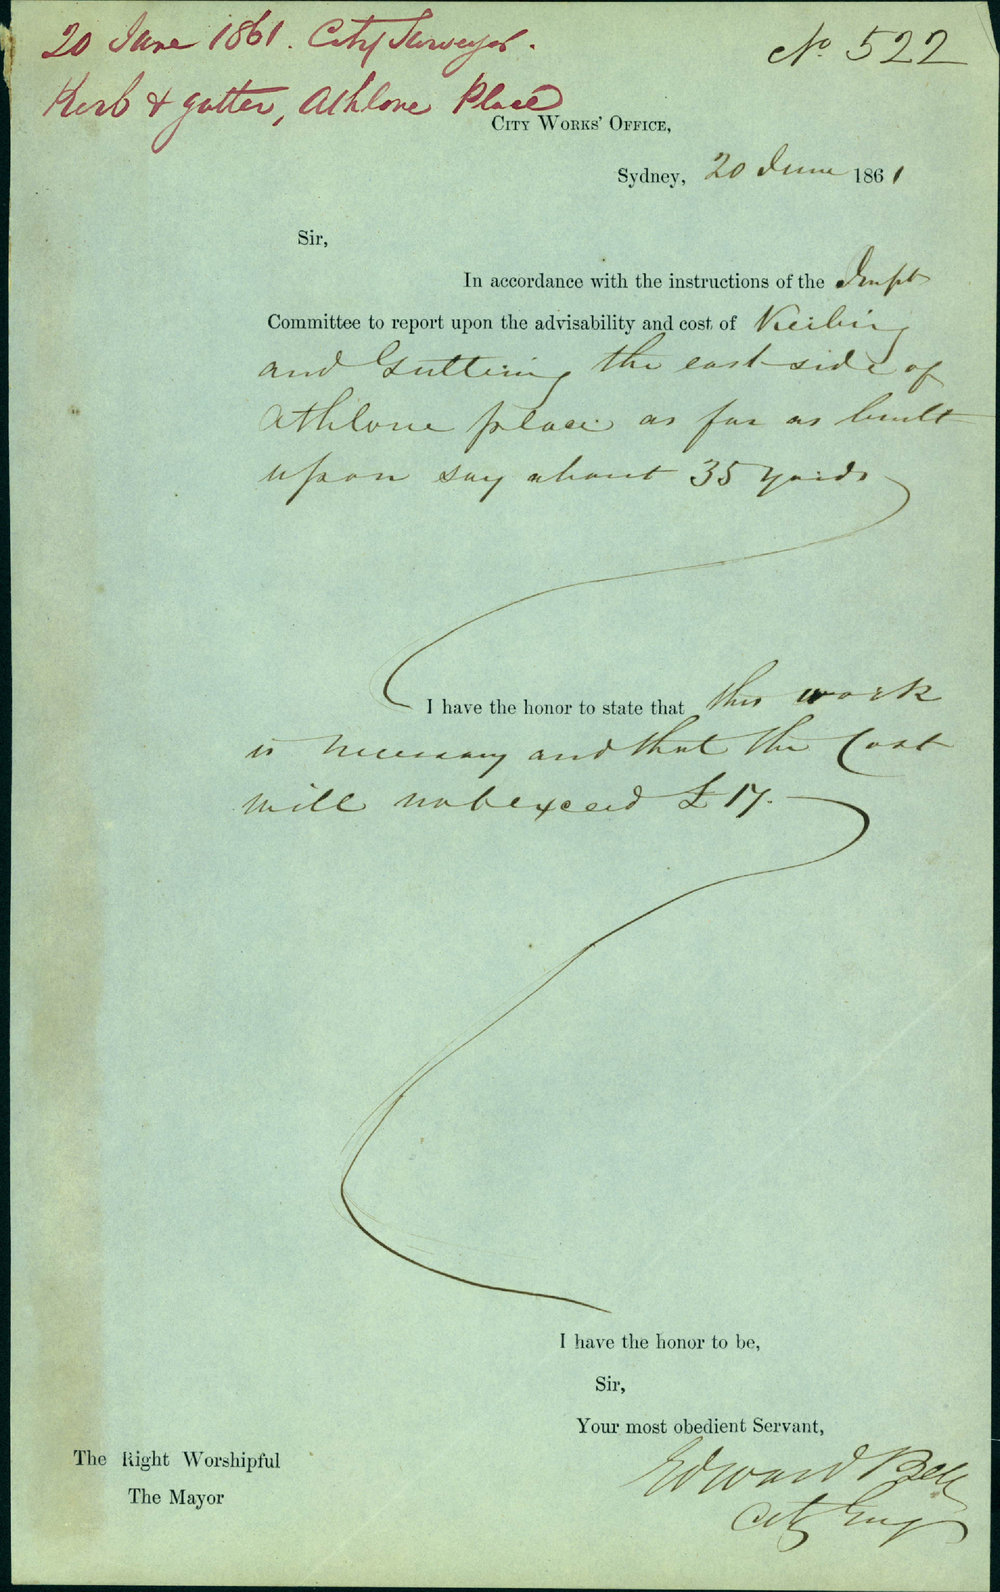 20 June 1861. City Surveyor.
No 522
Kerb & gutter, Athlone Place
CITY WORKS' OFFICE,
Sydney, 20 June 1861
Sir,
In accordance with the instructions of the Impt
Committee to report upon the advisability and cost of Kerbing
and Guttering the east side of
Athlone place as far as built
upon say about 35 yards
I have the honor to state that this work
is necessary and that the Cost
will not exceed £17.
I have the honor to be,
Sir,
Your most obedient Servant,
Edward Bell
City Engr
The Right Worshipful
The Mayor